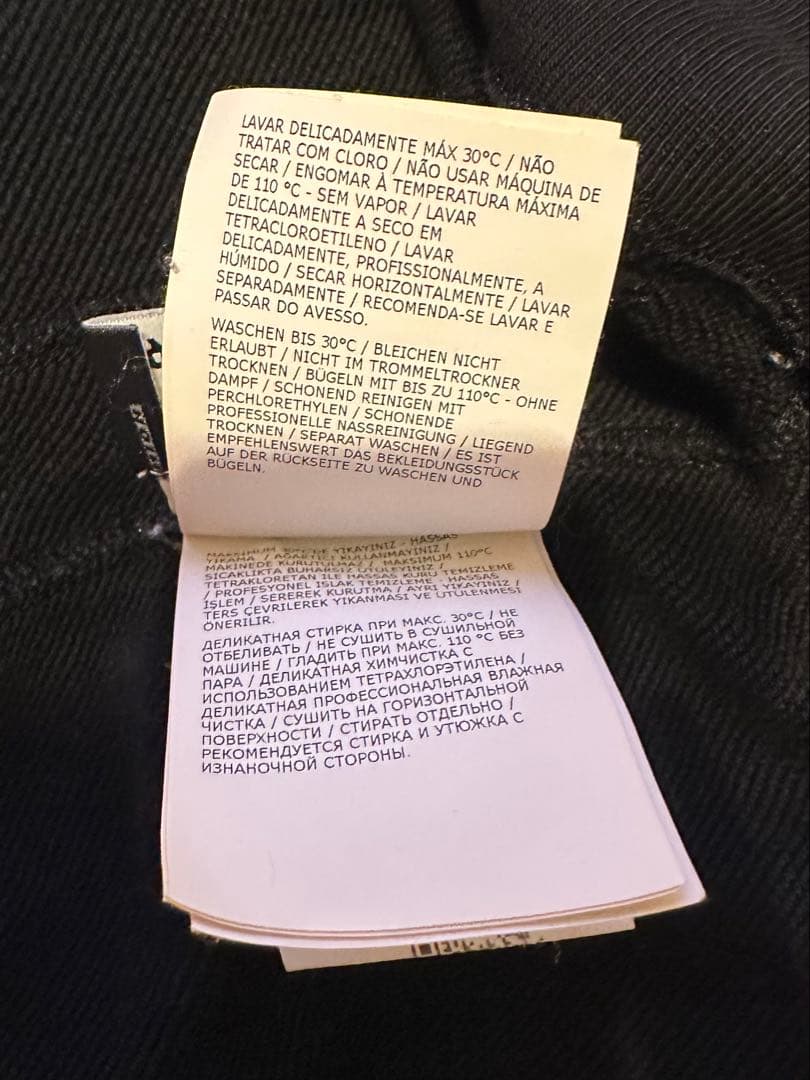 LAVAR DELICADAMENTE MÁX 30°C / NÃO
TRATAR COM CLORO / NÃO USAR MÁQUINA DE
SECAR / ENGOMAR À TEMPERATURA MÁXIMA
DE 110 °C - SEM VAPOR / LAVAR
DELICADAMENTE A SECO EM
TETRACLOROETILENO / LAVAR
DELICADAMENTE, PROFISSIONALMENTE, A
HÚMIDO / SECAR HORIZONTALMENTE / LAVAR
SEPARADAMENTE / RECOMENDA-SE LAVAR E
PASSAR DO AVESSO.
WASCHEN BIS 30°C / BLEICHEN NICHT
ERLAUBT / NICHT IM TROMMELTROCKNER
TROCKNEN / BÜGELN MIT BIS ZU 110°C - OHNE
DAMPF / SCHONEND REINIGEN MIT
PERCHLORETHYLEN / SCHONENDE
PROFESSIONELLE NASSREINIGUNG / LIEGEND
TROCKNEN / SEPARAT WASCHEN / ES IST
EMPFEHLENSWERT DAS BEKLEIDUNGSSTÜCK
AUF DER RÜCKSEITE ZU WASCHEN UND
BÜGELN.
YIKAYINIZ - HASSAS
YIKAMA / AĞARTICI KULLANMAYINIZ /
MAKİNEDE KURUTULMAZ / MAKSIMUM 110°C
SICAKLIKTA BUHARSIZ ÜTÜLEYİNİZ /
TETRAKLORETAN ILE HASSAS KURU TEMİZLEME
/ PROFESYONEL ISLAK TEMİZLEME - HASSAS
İŞLEM / SEREREK KURUTMA / AYRI YIKAYINIZ /
TERS ÇEVRİLEREK YIKANMASI VE ÜTÜLENMESİ
ÖNERİLİR.
ДЕЛИКАТНАЯ СТИРКА ПРИ МАКС. 30°C / НЕ
ОТБЕЛИВАТЬ / НЕ СУШИТЬ В СУШИЛЬНОЙ
МАШИНЕ / ГЛАДИТЬ ПРИ МАКС. 110 °C БЕЗ
ПАРА / ДЕЛИКАТНАЯ ХИМЧИСТКА С
ИСПОЛЬЗОВАНИЕМ ТЕТРАХЛОРЭТИЛЕНА /
ДЕЛИКАТНАЯ ПРОФЕССИОНАЛЬНАЯ ВЛАЖНАЯ
ЧИСТКА / СУШИТЬ НА ГОРИЗОНТАЛЬНОЙ
ПОВЕРХНОСТИ / СТИРАТЬ ОТДЕЛЬНО /
РЕКОМЕНДУЕТСЯ СТИРКА И УТЮЖКА С
ИЗНАНОЧНОЙ СТОРОНЫ.